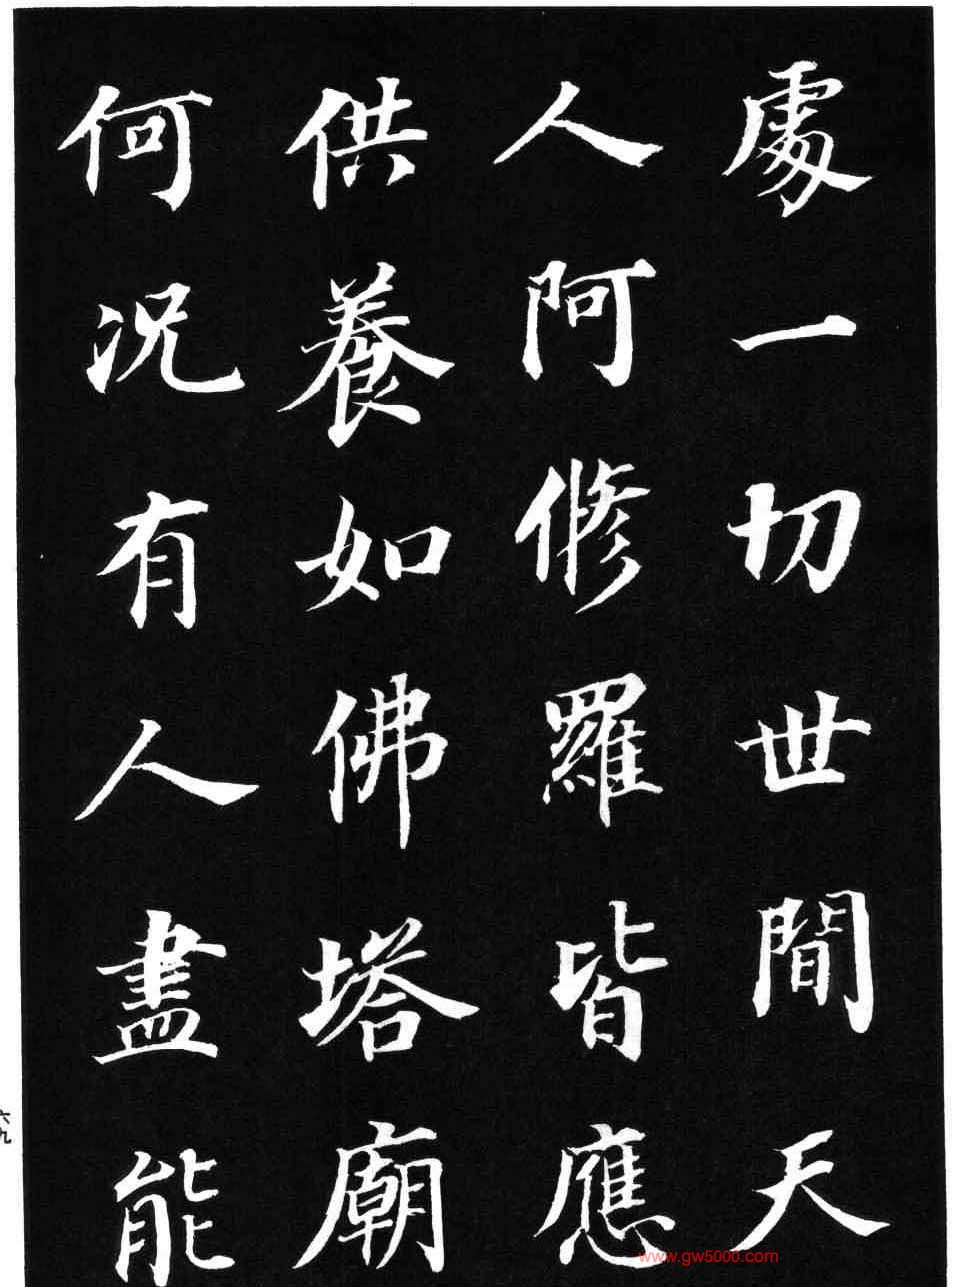 處一切世間天
人阿脩羅皆應
供養如佛塔廟
何況有人盡能
六九
www.gw5000.com